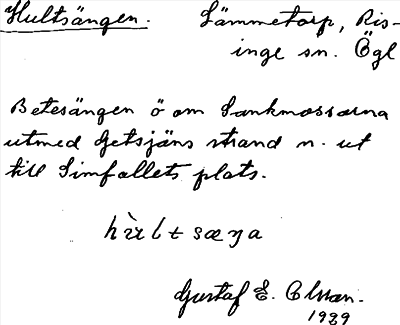 Hultsängen. Lämmetorp, Ris-
inge sn. Ögl
Betesängen ö om Sankmossarna
utmed Getsjäns strand n. ut
till Simfallets plats.
hùltsæŋa
Gustaf E. Olsson.
1939